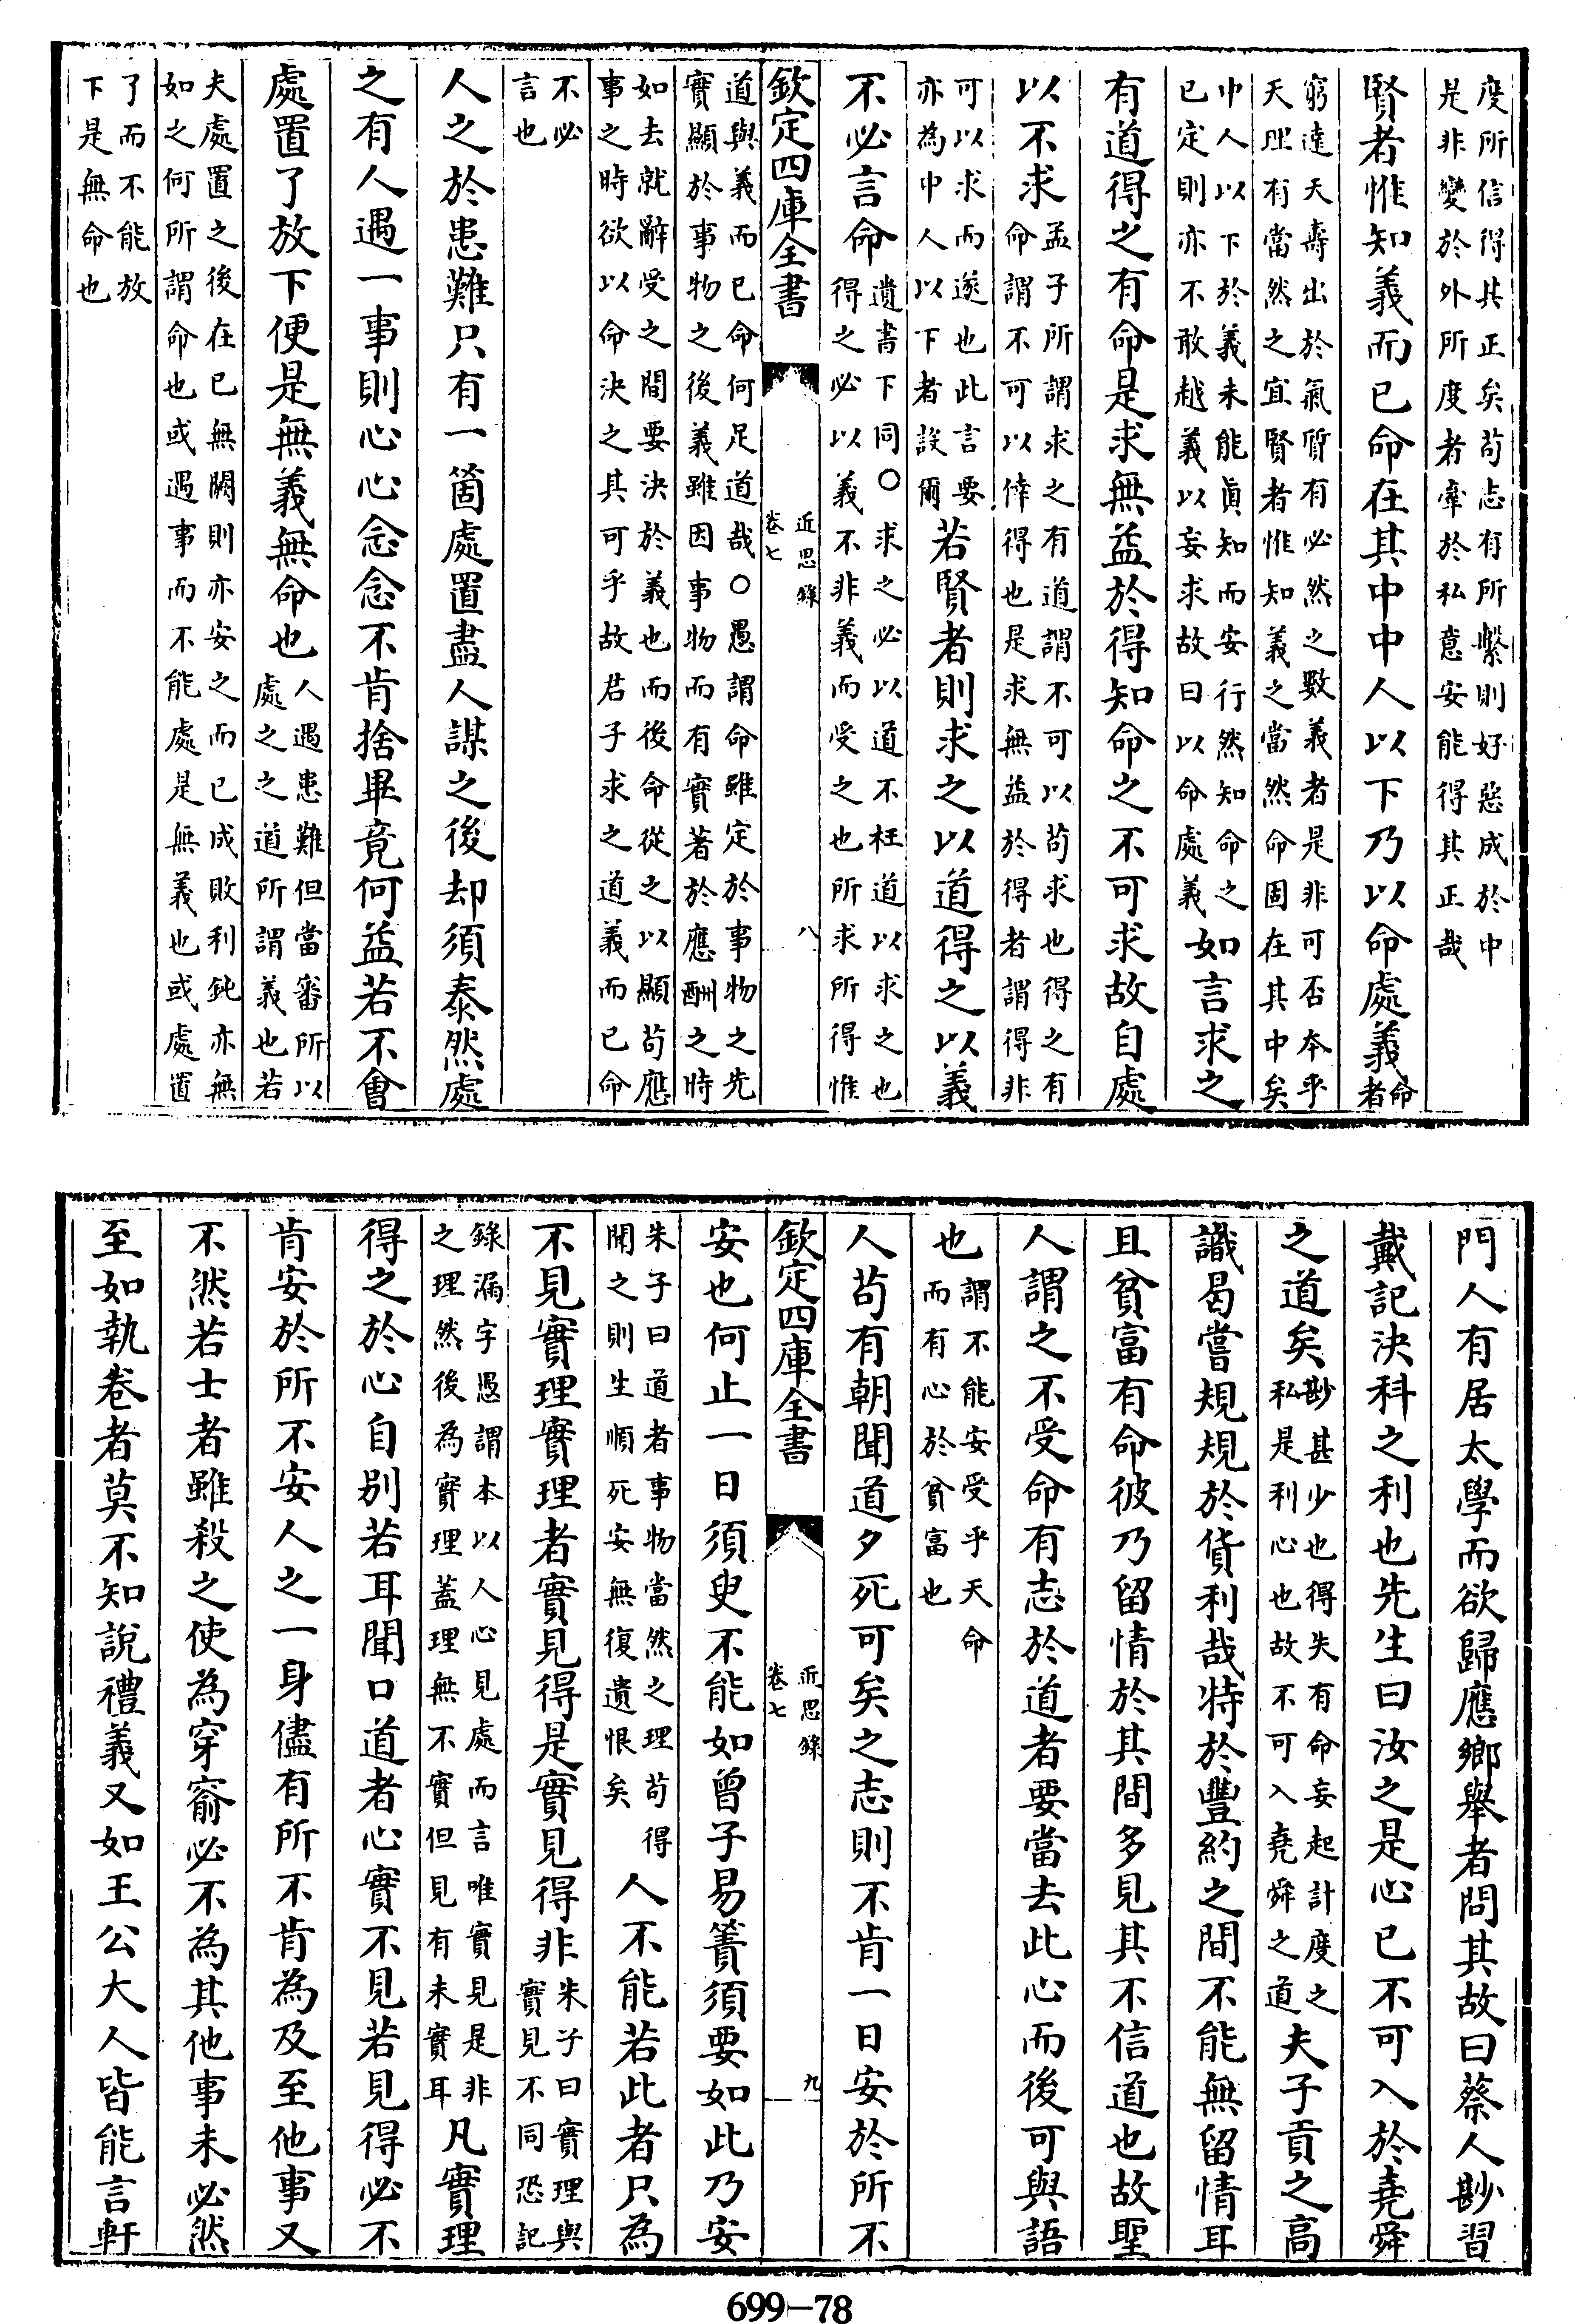 度所信得其正矣苟志有所繫則好惡成於中
是非變於外所度者牽於私意安能得其正哉
賢者惟知義而已命在其中中人以下乃以命處義命者
窮達夭壽出於氣質有必然之數義者是非可否本乎
天理有當然之宜賢者惟知義之當然命固在其中矣
中人以下於義未能真知而安行然知命之
已定則亦不敢越義以妄求故曰以命處義如言求之
有道得之有命是求無益於得知命之不可求故自處
以不求孟子所謂求之有道謂不可以苟求也得之有
命謂不可以倖得也是求無益於得者謂得非
可以求而遂也此言要
亦為中人以下者設爾若賢者則求之以道得之以義
不必言命遺書下同○求之必以道不枉道以求之也
得之必以義不非義而受之也所求所得惟
欽定四庫全書
近思錄
卷七
八
道與義而已命何足道哉○愚謂命雖定於事物之先
實顯於事物之後義雖因事物而有實著於應酬之時
如去就辭受之間要決於義也而後命從之以顯苟應
事之時欲以命決之其可乎故君子求之道義而已命
不必
言也
人之於患難只有一箇處置盡人謀之後却須泰然處
之有人遇一事則心心念念不肯捨畢竟何益若不會
處置了放下便是無義無命也人遇患難但當審所以
處之之道所謂義也若
夫處置之後在已無闕則亦安之而已成敗利鈍亦無
如之何所謂命也或遇事而不能處是無義也或處置
了而不能放
下是無命也
門人有居太學而欲歸應鄉舉者問其故曰蔡人尠習
戴記決科之利也先生曰汝之是心已不可入於堯舜
之道矣尠甚少也得失有命妄起計度之
私是利心也故不可入堯舜之道夫子貢之高
識曷嘗規規於貨利哉特於豐約之間不能無留情耳
且貧富有命彼乃留情於其間多見其不信道也故聖
人謂之不受命有志於道者要當去此心而後可與語
也謂不能安受乎天命
而有心於貧富也
人苟有朝聞道夕死可矣之志則不肯一日安於所不
欽定四庫全書
近思錄
卷七
九
安也何止一日須臾不能如曾子易簀須要如此乃安
朱子曰道者事物當然之理苟得
聞之則生順死安無復遺恨矣人不能若此者只為
不見實理實理者實見得是實見得非朱子曰實理與
實見不同恐記
錄漏字愚謂本以人心見處而言唯實見是非
之理然後為實理蓋理無不實但見有未實耳凡實理
得之於心自別若耳聞口道者心實不見若見得必不
肯安於所不安人之一身儘有所不肯為及至他事又
不然若士者雖殺之使為穿窬必不為其他事未必然
至如執卷者莫不知說禮義又如王公大人皆能言軒
699-78